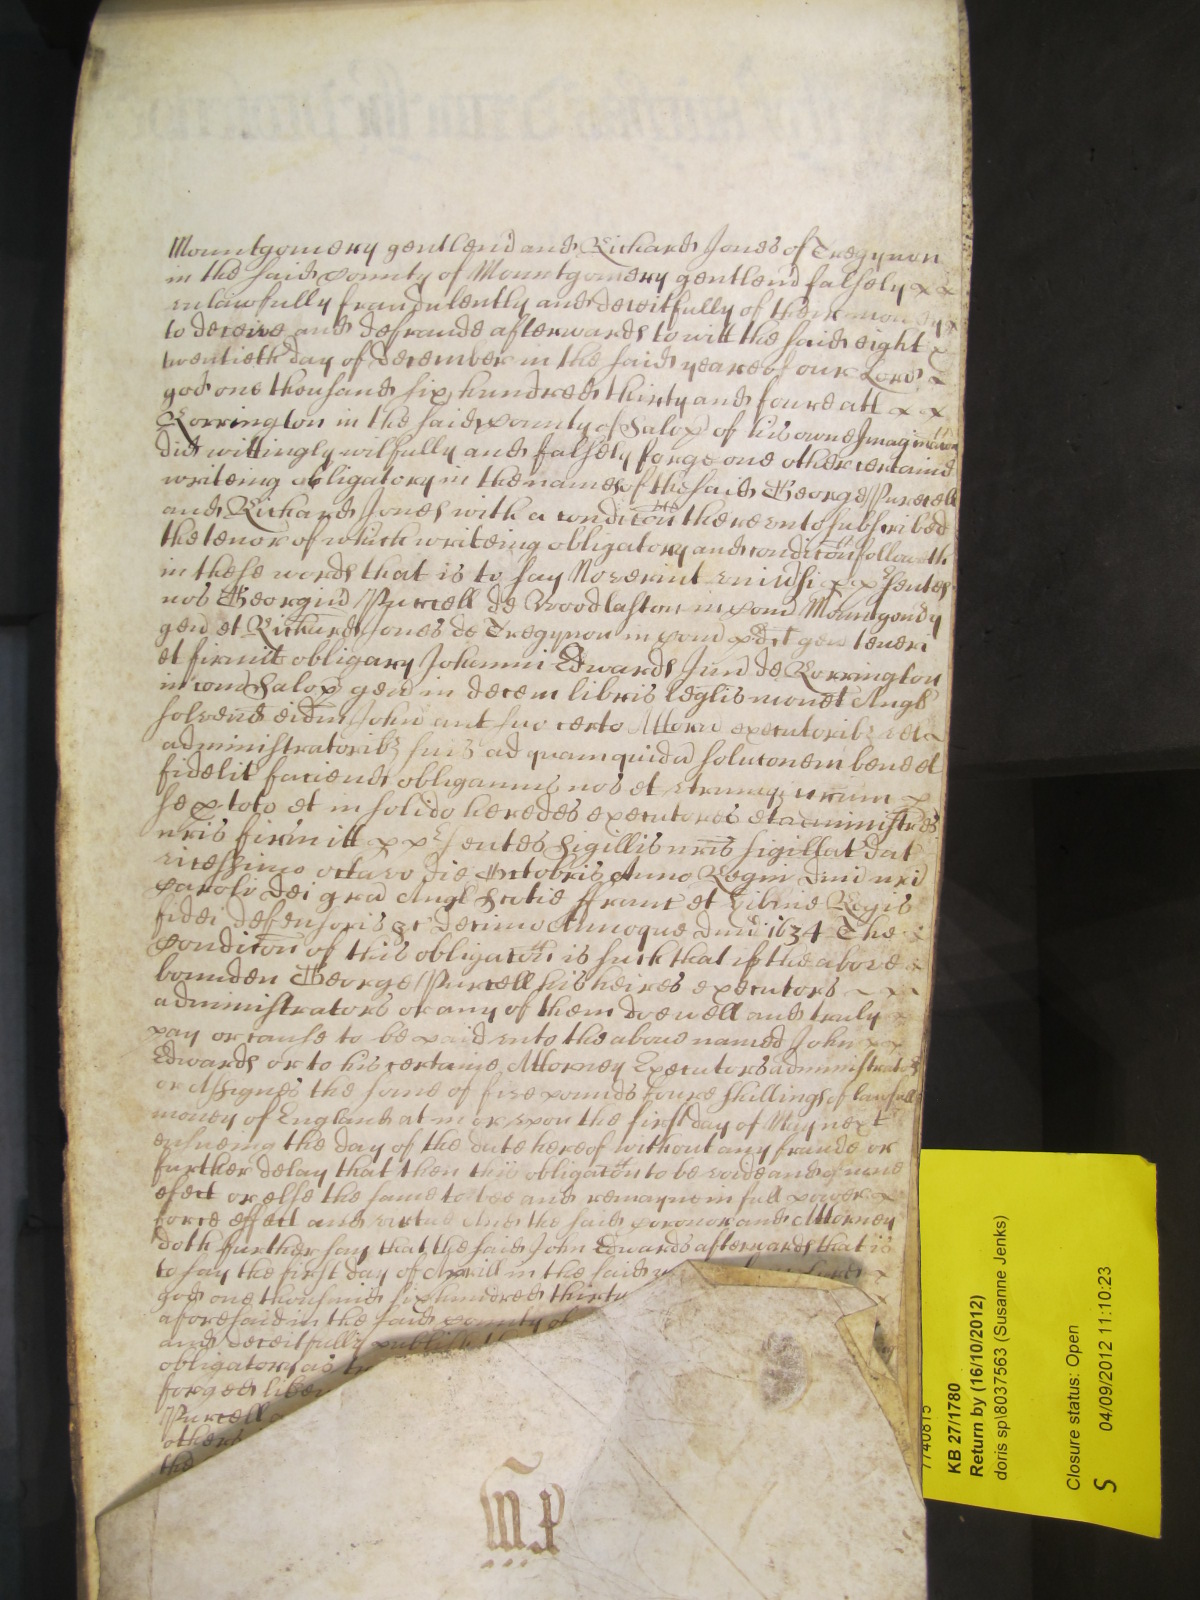 Mountgomery gentlem̄ and Richard Jones of Tregynon
in the said County of Mountgomery gentlem̄ falsely x x
unlawfully fraudulently and deceitfully of their money x
to deceive and defraude afterwards to witt the said eight x
twentieth day of December in the said yeare of our Lord x
god one thousand six hundred thirty and foure att x x
Rorrington in the said County of Salop of his owne Imaginacon
did wittingly wilfully and falsely forge one other certaine
writeing obligatory in the names of the said George Purcell
and Richard Jones with a condicōn thereunto subscribed
the tenor of which writeing obligatory and condicōn followeth
in these words that is to say Noverint univsi p p̱sentes
nos Georgiū Purcell de Woodlaston in Com̄ Mountgomy
gen̄ et Richard Jones de Tregynon in Com̄ p̱dct gen̄ teneri
et firmit obligary Johanni Edwards Jun̄ de Rorrington
in com̄ Salop gen̄ in decem libris leglis monet Angl
solvend eidm John aut suo certo Attorn executoribz vel
administratoribz suis ad quam quidm̄ solucōnem bene et
fidelit faciend obligamus nos et utrumqz nrum p
se p toto et in solido heredes executores et administres
nris firmitt p p̱sentes Sigillis nris sigillat dat
vicessimo octavo die Octobris Anno Regni dm̄i nri
Caroli dei gra Angl Scotie ffranc et hibnie Regis
fidei defensoris &c decimo Annoque dm̄i 1634 The x
Condicōn of this obligacōn is such that if the above x
bounden George Purcell his heires executors x x
administrators or any of them doe well and truly x
pay or cause to be paid unto the above named John x x
Edwards or to his certaine Attorney Executors administrators
or Assignes the some of five pounds foure shillings of lawfull
money of England at in or upon the first day of May next
ensueing the day of the date hereof without any fraude or
further delay that then this obligacōn to be voide and of none
efect or else the same to bee and remayne in full power x
force effect and virtue And the said Coronor and Attorney
doth further say that the said John Edwards afterwards that is
to say the first day of Aprill in the said
god one thousand six hundred thirty
aforesaid in the said County of
and deceitfully publish
obligatory as
forged
Purcell
others
the
KB 27/1780
Return by (16/10/2012)
doris sp\8037563 (Susanne Jenks)
Closure status: Open
04/09/2012 11:10:23
S